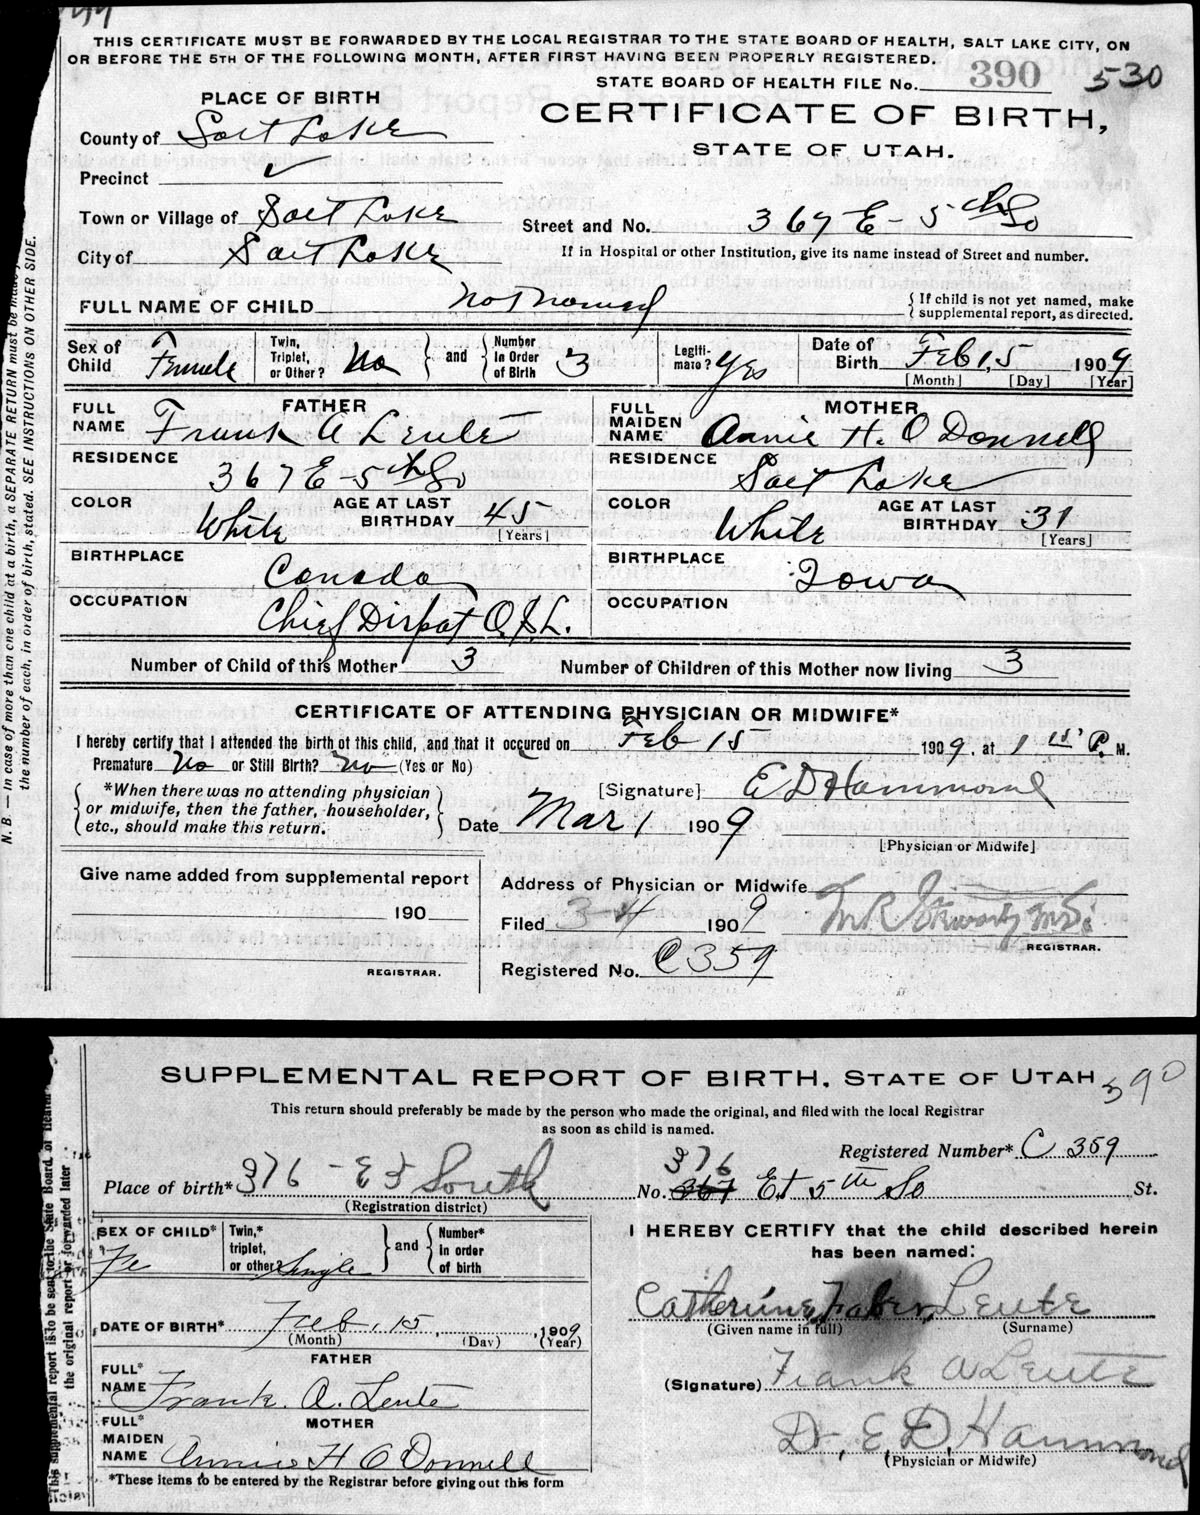 THIS CERTIFICATE MUST BE FORWARDED BY THE LOCAL REGISTRAR TO THE STATE BOARD OF HEALTH, SALT LAKE CITY, ON
OR BEFORE THE 5TH OF THE FOLLOWING MONTH, AFTER FIRST HAVING BEEN PROPERLY REGISTERED.
STATE BOARD OF HEALTH FILE No. 390 530
PLACE OF BIRTH
CERTIFICATE OF BIRTH,
STATE OF UTAH.
County of Salt Lake
Precinct ✓
Town or Village of Salt Lake
Street and No. 367 E - 5th So
City of Salt Lake
If in Hospital or other Institution, give its name instead of Street and number.
FULL NAME OF CHILD not named
{ If child is not yet named, make supplemental report, as directed.
Sex of Child Female
Twin, Triplet, or Other? No } and { Number In Order of Birth 3
Legitimate? Yes
Date of Birth Feb 15 1909
[Month] [Day] [Year]
FATHER
FULL NAME Frank A Leute
RESIDENCE 367 E - 5th So
COLOR White AGE AT LAST BIRTHDAY 45 [Years]
BIRTHPLACE Canada
OCCUPATION Chief Dispat O.S.L.
MOTHER
FULL MAIDEN NAME Annie H. O Donnell
RESIDENCE Salt Lake
COLOR White AGE AT LAST BIRTHDAY 31 [Years]
BIRTHPLACE Iowa
OCCUPATION
Number of Child of this Mother 3 Number of Children of this Mother now living 3
CERTIFICATE OF ATTENDING PHYSICIAN OR MIDWIFE*
I hereby certify that I attended the birth of this child, and that it occured on Feb 15 1909, at 1 15 P. M.
Premature No or Still Birth? No (Yes or No)
{ *When there was no attending physician or midwife, then the father, householder, etc., should make this return. }
[Signature] E D Hammond
Date Mar 1 1909
[Physician or Midwife]
Give name added from supplemental report
190
REGISTRAR.
Address of Physician or Midwife
Filed 3-4 1909
REGISTRAR.
Registered No. C 359
N. B. — In case of more than one child at a birth, a SEPARATE RETURN must be made
the number of each, in order of birth, stated. SEE INSTRUCTIONS ON OTHER SIDE.
SUPPLEMENTAL REPORT OF BIRTH, STATE OF UTAH 390
This return should preferably be made by the person who made the original, and filed with the local Registrar
as soon as child is named.
Registered Number* C 359
Place of birth* 376 - E 5 South
(Registration district)
376
No. 367 E 5th So St.
SEX OF CHILD* Fe
Twin,* triplet, or other? Single } and { Number* In order of birth
DATE OF BIRTH* Feb. 15, 1909
(Month) (Day) (Year)
FATHER
FULL* NAME Frank. A. Leute
MOTHER
FULL* MAIDEN NAME Annie H O Donnell
*These items to be entered by the Registrar before giving out this form
I HEREBY CERTIFY that the child described herein
has been named:
Catherine Faber Leute
(Given name in full) (Surname)
(Signature) Frank A Leute
Dr. E. D. Hammond
(Physician or Midwife)
This supplemental report is to be sent to the State Board of Health
the original report or forwarded later